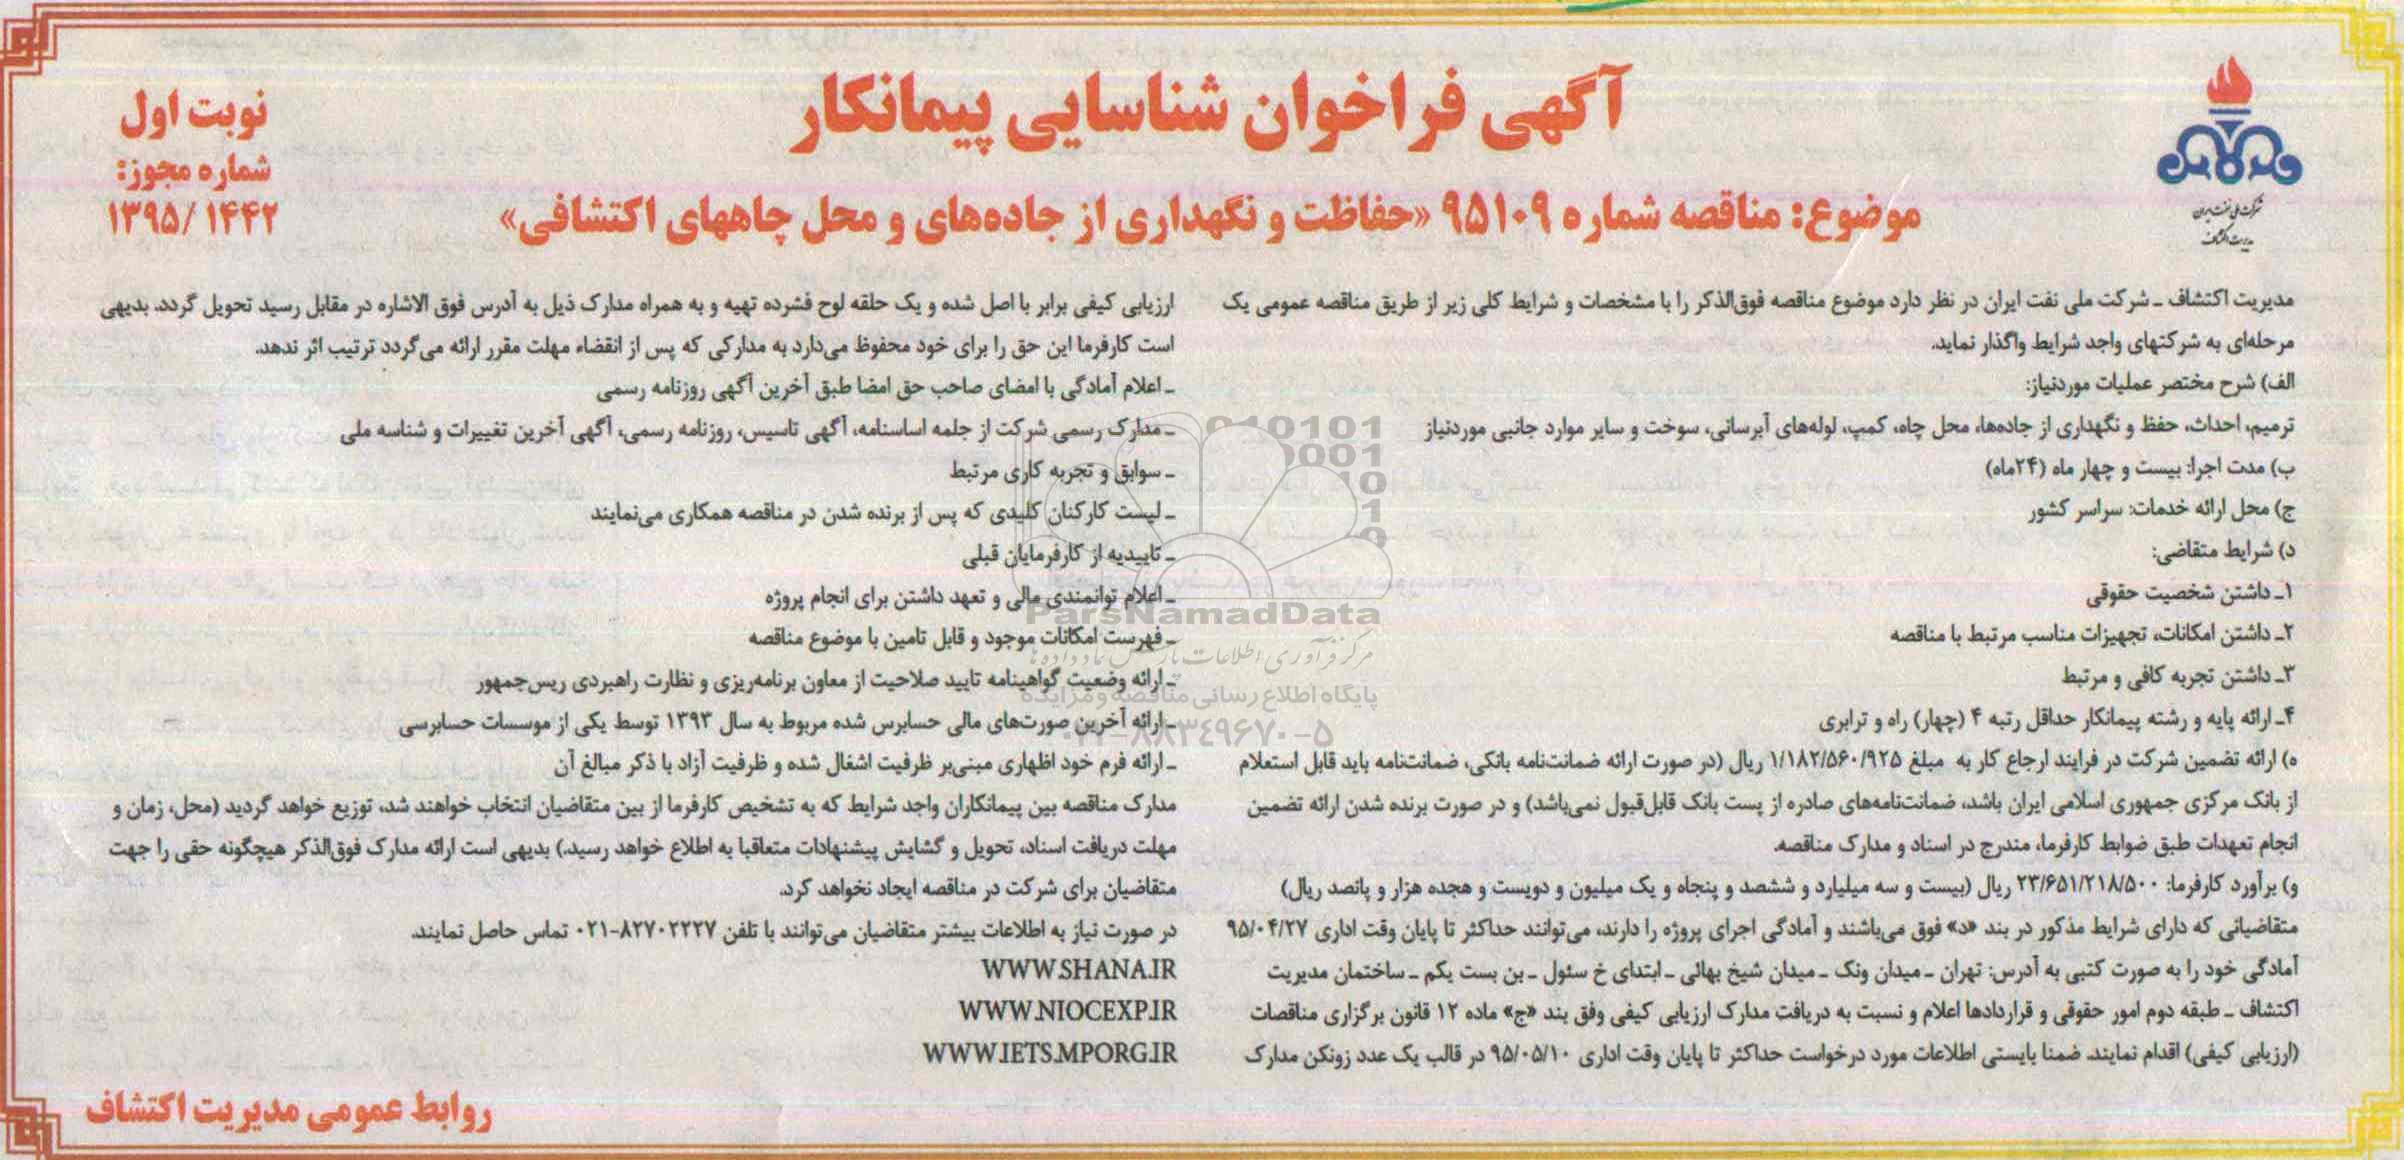 آگهی فراخوان شناسایی پیمانکار
موضوع: مناقصه شماره ۹۵۱۰۹ «حفاظت و نگهداری از جاده‌های و محل چاههای اکتشافی»
نوبت اول
شماره مجوز:
۱۳۹۵/ ۱۴۴۲
شرکت ملی نفت ایران
مدیریت اکتشاف
مدیریت اکتشاف ـ شرکت ملی نفت ایران در نظر دارد موضوع مناقصه فوق‌الذکر را با مشخصات و شرایط کلی زیر از طریق مناقصه عمومی یک
مرحله‌ای به شرکتهای واجد شرایط واگذار نماید.
الف) شرح مختصر عملیات موردنیاز:
ترمیم، احداث، حفظ و نگهداری از جاده‌ها، محل چاه، کمپ، لوله‌های آبرسانی، سوخت و سایر موارد جانبی موردنیاز
ب) مدت اجرا: بیست و چهار ماه (۲۴ماه)
ج) محل ارائه خدمات: سراسر کشور
د) شرایط متقاضی:
۱ـ داشتن شخصیت حقوقی
۲ـ داشتن امکانات، تجهیزات مناسب مرتبط با مناقصه
۳ـ داشتن تجربه کافی و مرتبط
۴ـ ارائه پایه و رشته پیمانکار حداقل رتبه ۴ (چهار) راه و ترابری
ه) ارائه تضمین شرکت در فرایند ارجاع کار به مبلغ ۱/۱۸۲/۵۶۰/۹۲۵ ریال (در صورت ارائه ضمانت‌نامه بانکی، ضمانت‌نامه باید قابل استعلام
از بانک مرکزی جمهوری اسلامی ایران باشد، ضمانت‌نامه‌های صادره از پست بانک قابل‌قبول نمی‌باشد) و در صورت برنده شدن ارائه تضمین
انجام تعهدات طبق ضوابط کارفرما، مندرج در اسناد و مدارک مناقصه.
و) برآورد کارفرما: ۲۳/۶۵۱/۲۱۸/۵۰۰ ریال (بیست و سه میلیارد و ششصد و پنجاه و یک میلیون و دویست و هجده هزار و پانصد ریال)
متقاضیانی که دارای شرایط مذکور در بند «د» فوق می‌باشند و آمادگی اجرای پروژه را دارند، می‌توانند حداکثر تا پایان وقت اداری ۹۵/۰۴/۲۷
آمادگی خود را به صورت کتبی به آدرس: تهران ـ میدان ونک ـ میدان شیخ بهائی ـ ابتدای خ سئول ـ بن بست یکم ـ ساختمان مدیریت
اکتشاف ـ طبقه دوم امور حقوقی و قراردادها اعلام و نسبت به دریافت مدارک ارزیابی کیفی وفق بند «ج» ماده ۱۲ قانون برگزاری مناقصات
(ارزیابی کیفی) اقدام نمایند. ضمنا بایستی اطلاعات مورد درخواست حداکثر تا پایان وقت اداری ۹۵/۰۵/۱۰ در قالب یک عدد زونکن مدارک
ارزیابی کیفی برابر با اصل شده و یک حلقه لوح فشرده تهیه و به همراه مدارک ذیل به آدرس فوق الاشاره در مقابل رسید تحویل گردد. بدیهی
است کارفرما این حق را برای خود محفوظ می‌دارد به مدارکی که پس از انقضاء مهلت مقرر ارائه می‌گردد ترتیب اثر ندهد.
ـ اعلام آمادگی با امضای صاحب حق امضا طبق آخرین آگهی روزنامه رسمی
ـ مدارک رسمی شرکت از جمله اساسنامه، آگهی تاسیس، روزنامه رسمی، آگهی آخرین تغییرات و شناسه ملی
ـ سوابق و تجربه کاری مرتبط
ـ لیست کارکنان کلیدی که پس از برنده شدن در مناقصه همکاری می‌نمایند
ـ تاییدیه از کارفرمایان قبلی
ـ اعلام توانمندی مالی و تعهد داشتن برای انجام پروژه
ـ فهرست امکانات موجود و قابل تامین با موضوع مناقصه
ـ ارائه وضعیت گواهینامه تایید صلاحیت از معاون برنامه‌ریزی و نظارت راهبردی ریس‌جمهور
ـ ارائه آخرین صورت‌های مالی حسابرس شده مربوط به سال ۱۳۹۳ توسط یکی از موسسات حسابرسی
ـ ارائه فرم خود اظهاری مبنی‌بر ظرفیت اشغال شده و ظرفیت آزاد با ذکر مبالغ آن
مدارک مناقصه بین پیمانکاران واجد شرایط که به تشخیص کارفرما از بین متقاضیان انتخاب خواهند شد، توزیع خواهد گردید (محل، زمان و
مهلت دریافت اسناد، تحویل و گشایش پیشنهادات متعاقبا به اطلاع خواهد رسید.) بدیهی است ارائه مدارک فوق‌الذکر هیچگونه حقی را جهت
متقاضیان برای شرکت در مناقصه ایجاد نخواهد کرد.
در صورت نیاز به اطلاعات بیشتر متقاضیان می‌توانند با تلفن ۸۲۷۰۲۲۲۷-۰۲۱ تماس حاصل نمایند.
WWW.SHANA.IR
WWW.NIOCEXP.IR
WWW.IETS.MPORG.IR
روابط عمومی مدیریت اکتشاف
ParsNamadData
مرکز فرآوری اطلاعات پارس نماد داده ها
پایگاه اطلاع رسانی مناقصه و مزایده
۰۲۱-۸۸۳۴۹۶۷۰-۵